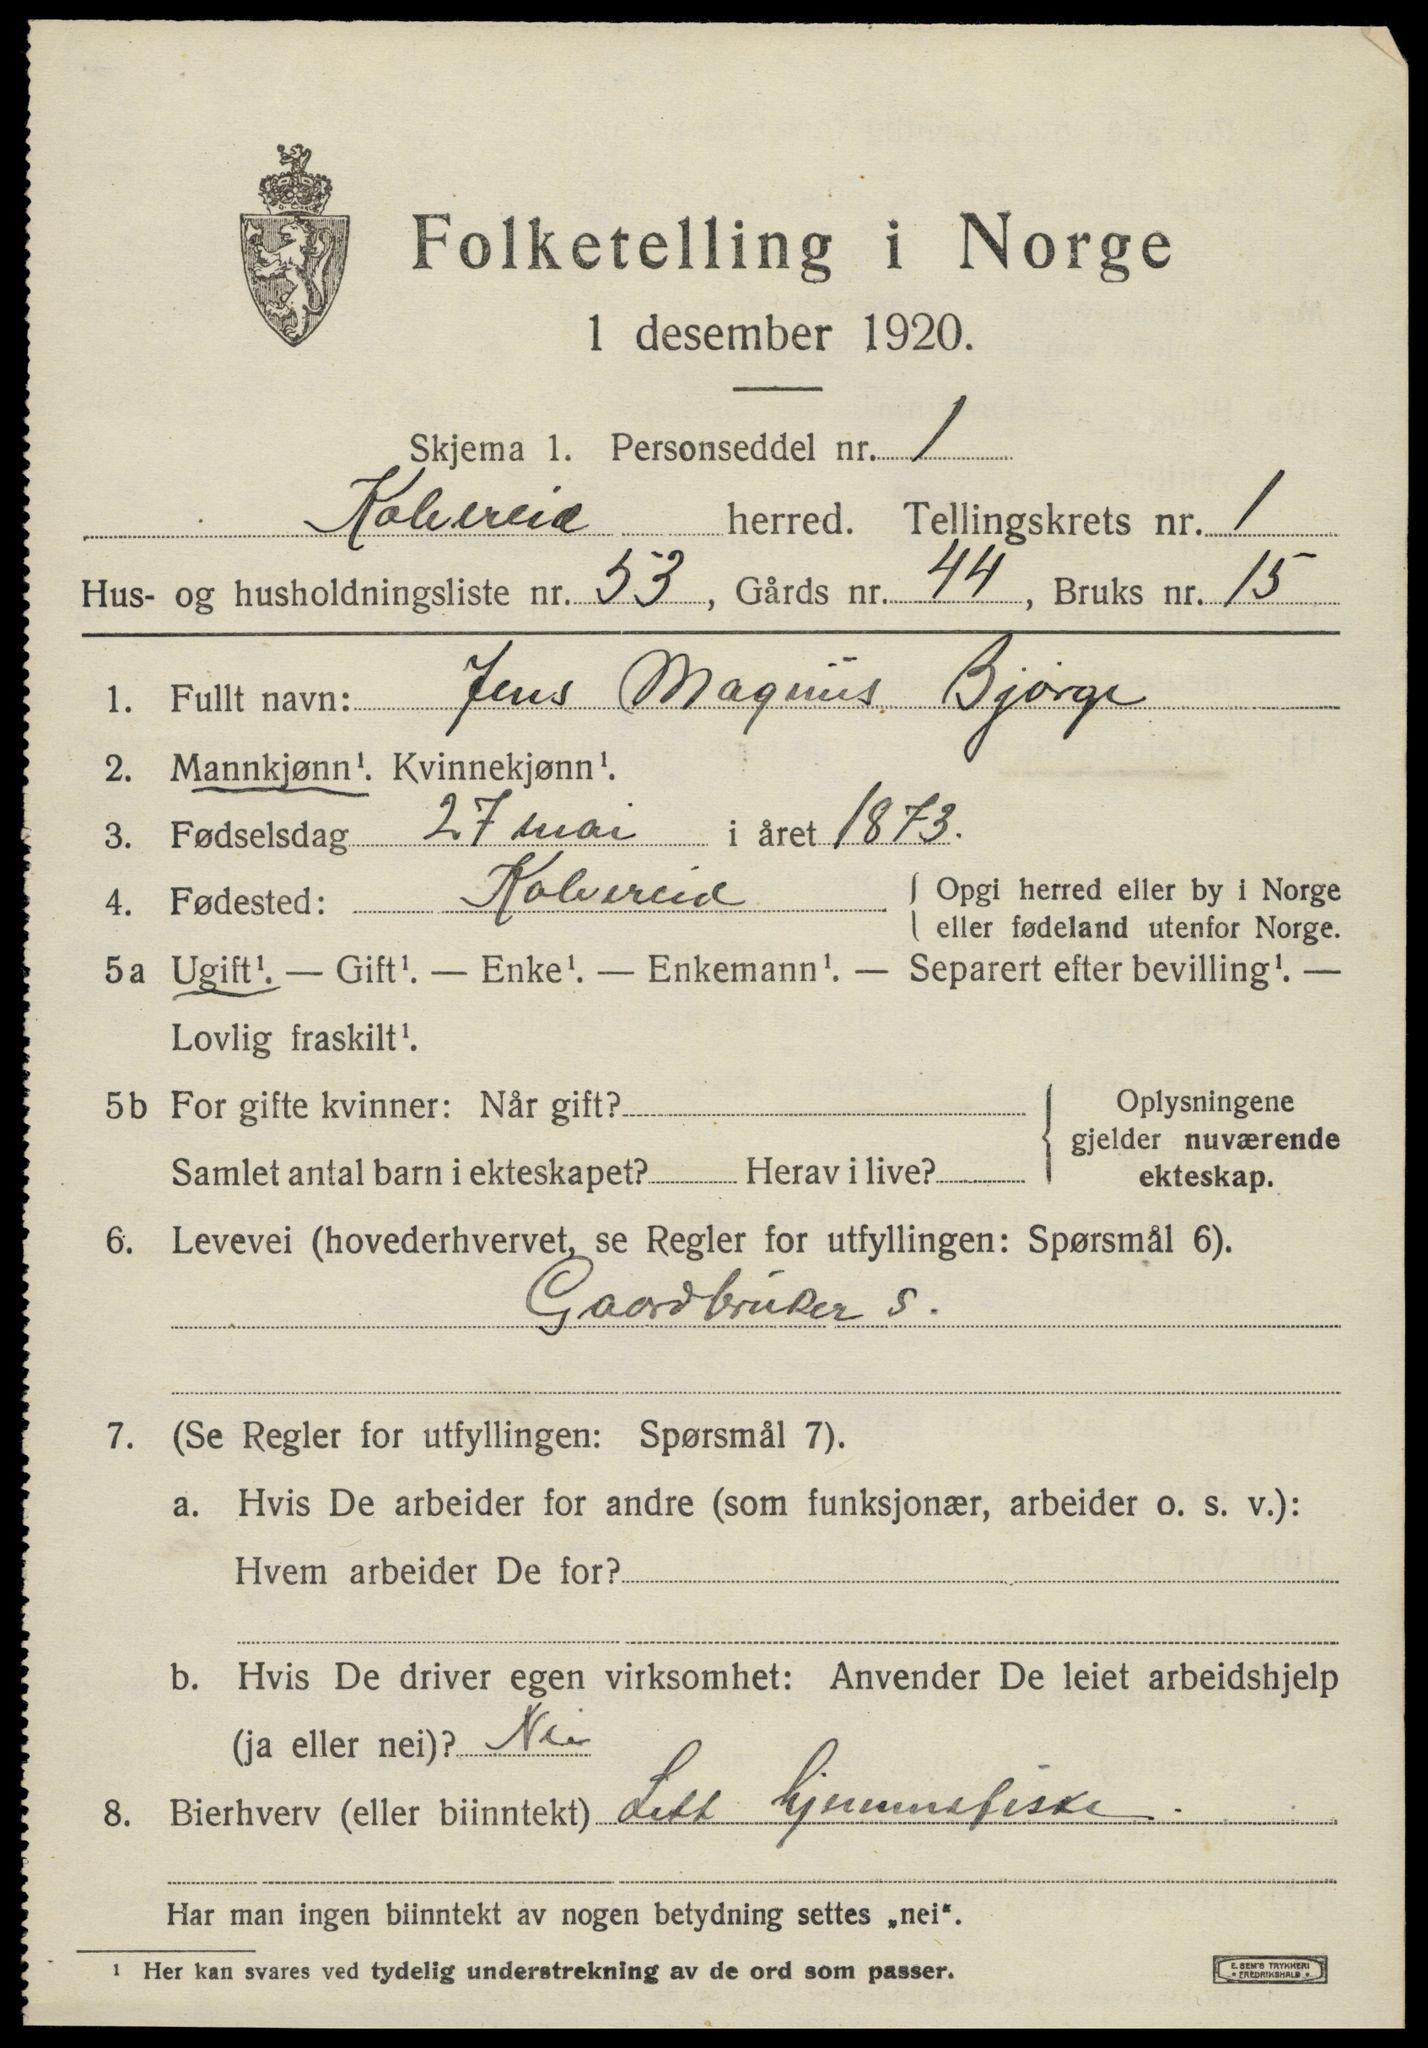 Folketelling i Norge
1 desember 1920.
Skjema 1. Personseddel nr. 1
Kolvereid herred. Tellingskrets nr. 1
Hus- og husholdningsliste nr. 53, Gårds nr. 44, Bruks nr. 15
1. Fullt navn: Jens Magnus Bjørge
2. Mannkjønn¹. Kvinnekjønn¹.
3. Fødselsdag 27 mai i året 1873.
4. Fødested: Kolvereid { Opgi herred eller by i Norge
eller fødeland utenfor Norge.
5a Ugift¹. — Gift¹. — Enke¹. — Enkemann¹. — Separert efter bevilling¹. —
Lovlig fraskilt¹.
5b For gifte kvinner: Når gift? { Oplysningene
gjelder nuværende
Samlet antal barn i ekteskapet? Herav i live? ekteskap.
6. Levevei (hovederhvervet, se Regler for utfyllingen: Spørsmål 6).
Gaardbruker s.
7. (Se Regler for utfyllingen: Spørsmål 7).
a. Hvis De arbeider for andre (som funksjonær, arbeider o. s. v.):
Hvem arbeider De for?
b. Hvis De driver egen virksomhet: Anvender De leiet arbeidshjelp
(ja eller nei)? Nei
8. Bierhverv (eller biinntekt) Litt hjemmefiske.
Har man ingen biinntekt av nogen betydning settes „nei“.
¹ Her kan svares ved tydelig understrekning av de ord som passer.
E. SEM'S TRYKKERI
• FREDRIKSHALD •